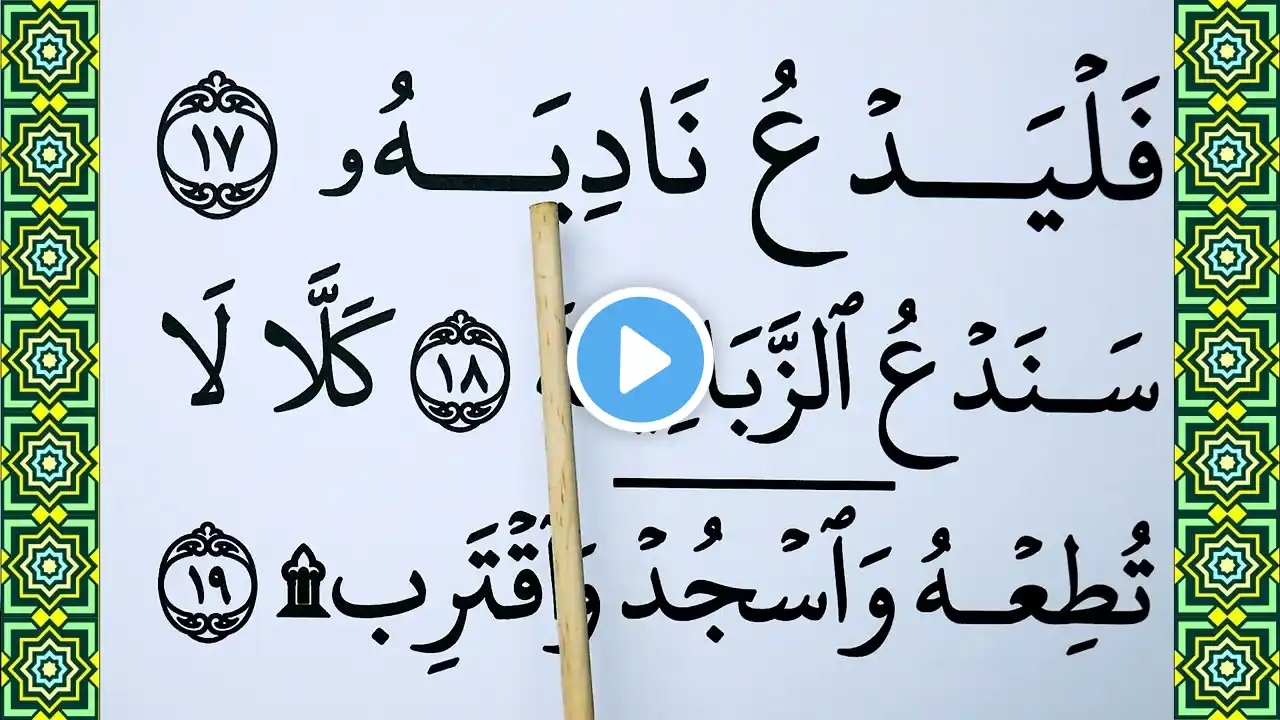 فَلْيَدْعُ نَادِيَهُۥ ١٧
سَنَدْعُ ٱلزَّبَانِيَةَ ١٨ كَلَّا لَا
تُطِعْهُ وَٱسْجُدْ وَٱقْتَرِب ۩ ١٩